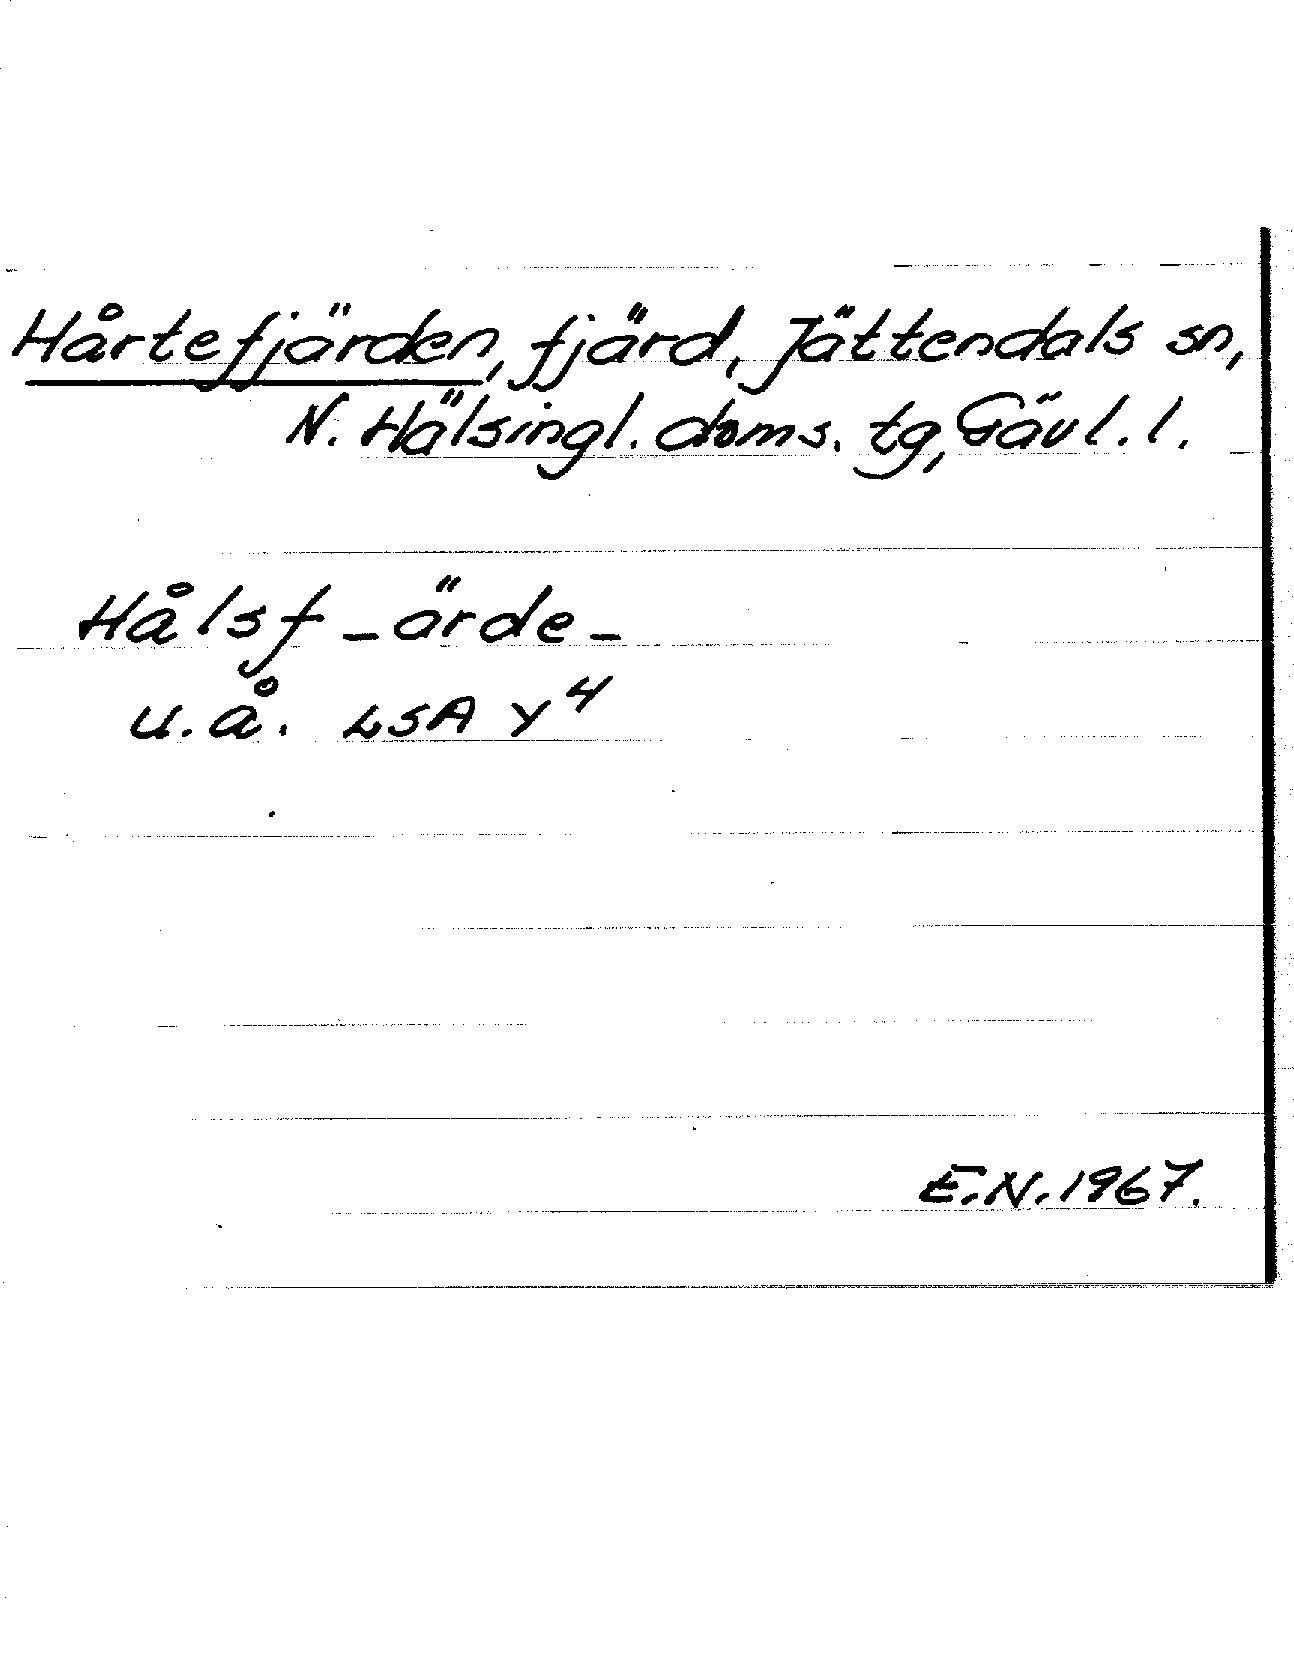 Hårtefjärden, fjärd, Jättendals sn,
N. Hälsingl. doms. tg, Gävl. l.
Hålsf-ärde-
u.å. LSA Y⁴
E.N. 1967.